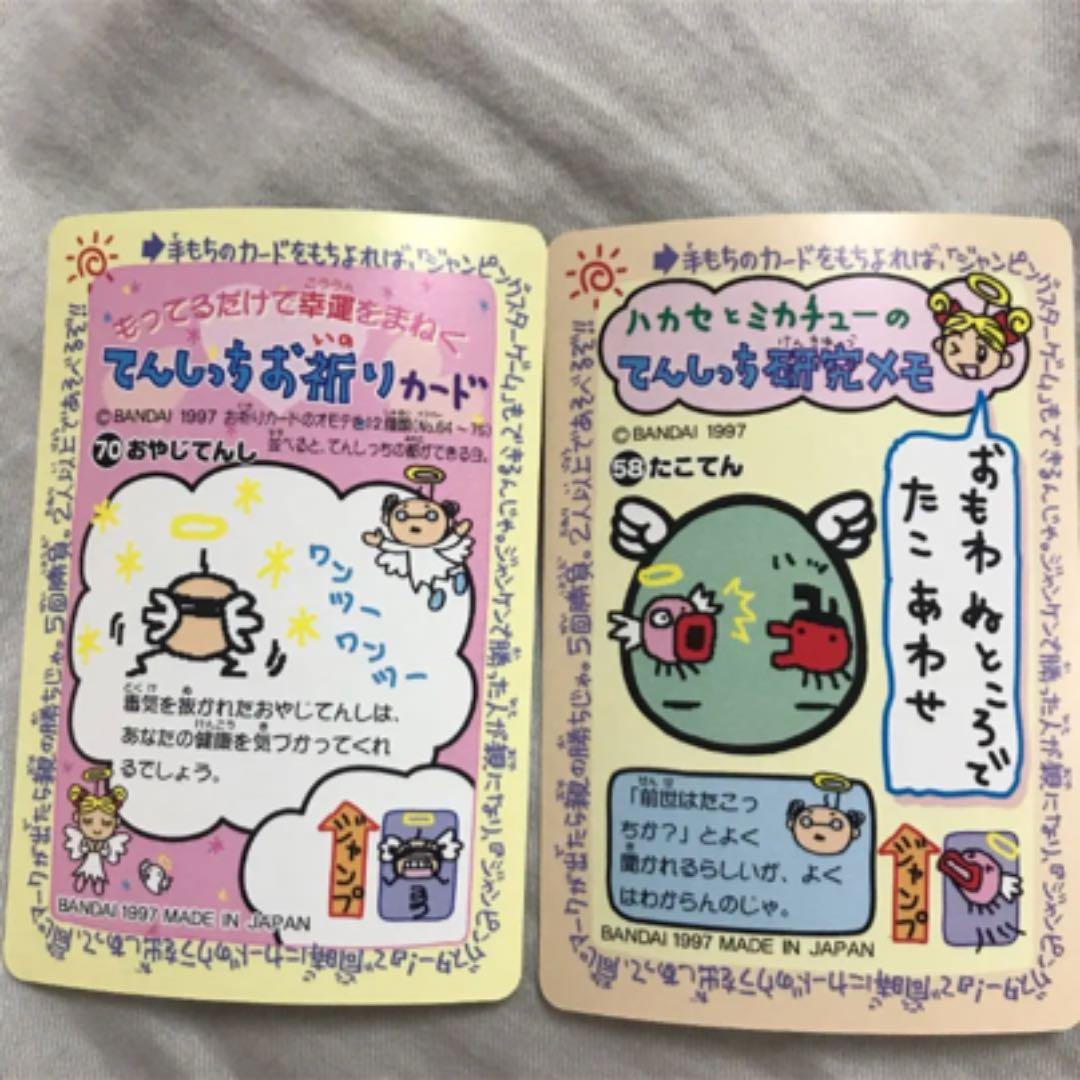 ➡手もちのカードをもちよれば、「ジャンピングスターゲーム」もできるんじゃ。ジャンケンで勝った人が親になり、『ジャンピングスター！』
2人以上であそべるぞ!!
もってるだけで幸運をまねく
こううん
てんしっちお祈りカード
いの
©BANDAI 1997 お祈りカードのオモテを12種類(No.64〜75)
70おやじてんし 並べると、てんしっちの都ができるヨ。
ワンツー
ワンツー
毒気を抜かれたおやじてんしは、
あなたの健康を気づかってくれ
るでしょう。
ジャンプ
3つ
BANDAI 1997 MADE IN JAPAN
➡手もちのカードをもちよれば、「ジャンピングスターゲーム」もできるんじゃ。ジャンケンで勝った人が親になり、『ジャンピングスター！』
2人以上であそべるぞ!!
ハカセとミカチューの
てんしっち研究メモ
けんきゅう
©BANDAI 1997
58たこてん
おもわぬところで
たこあわせ
「前世はたこっ
ちか?」とよく
聞かれるらしいが、よく
はわからんのじゃ。
ジャンプ
BANDAI 1997 MADE IN JAPAN